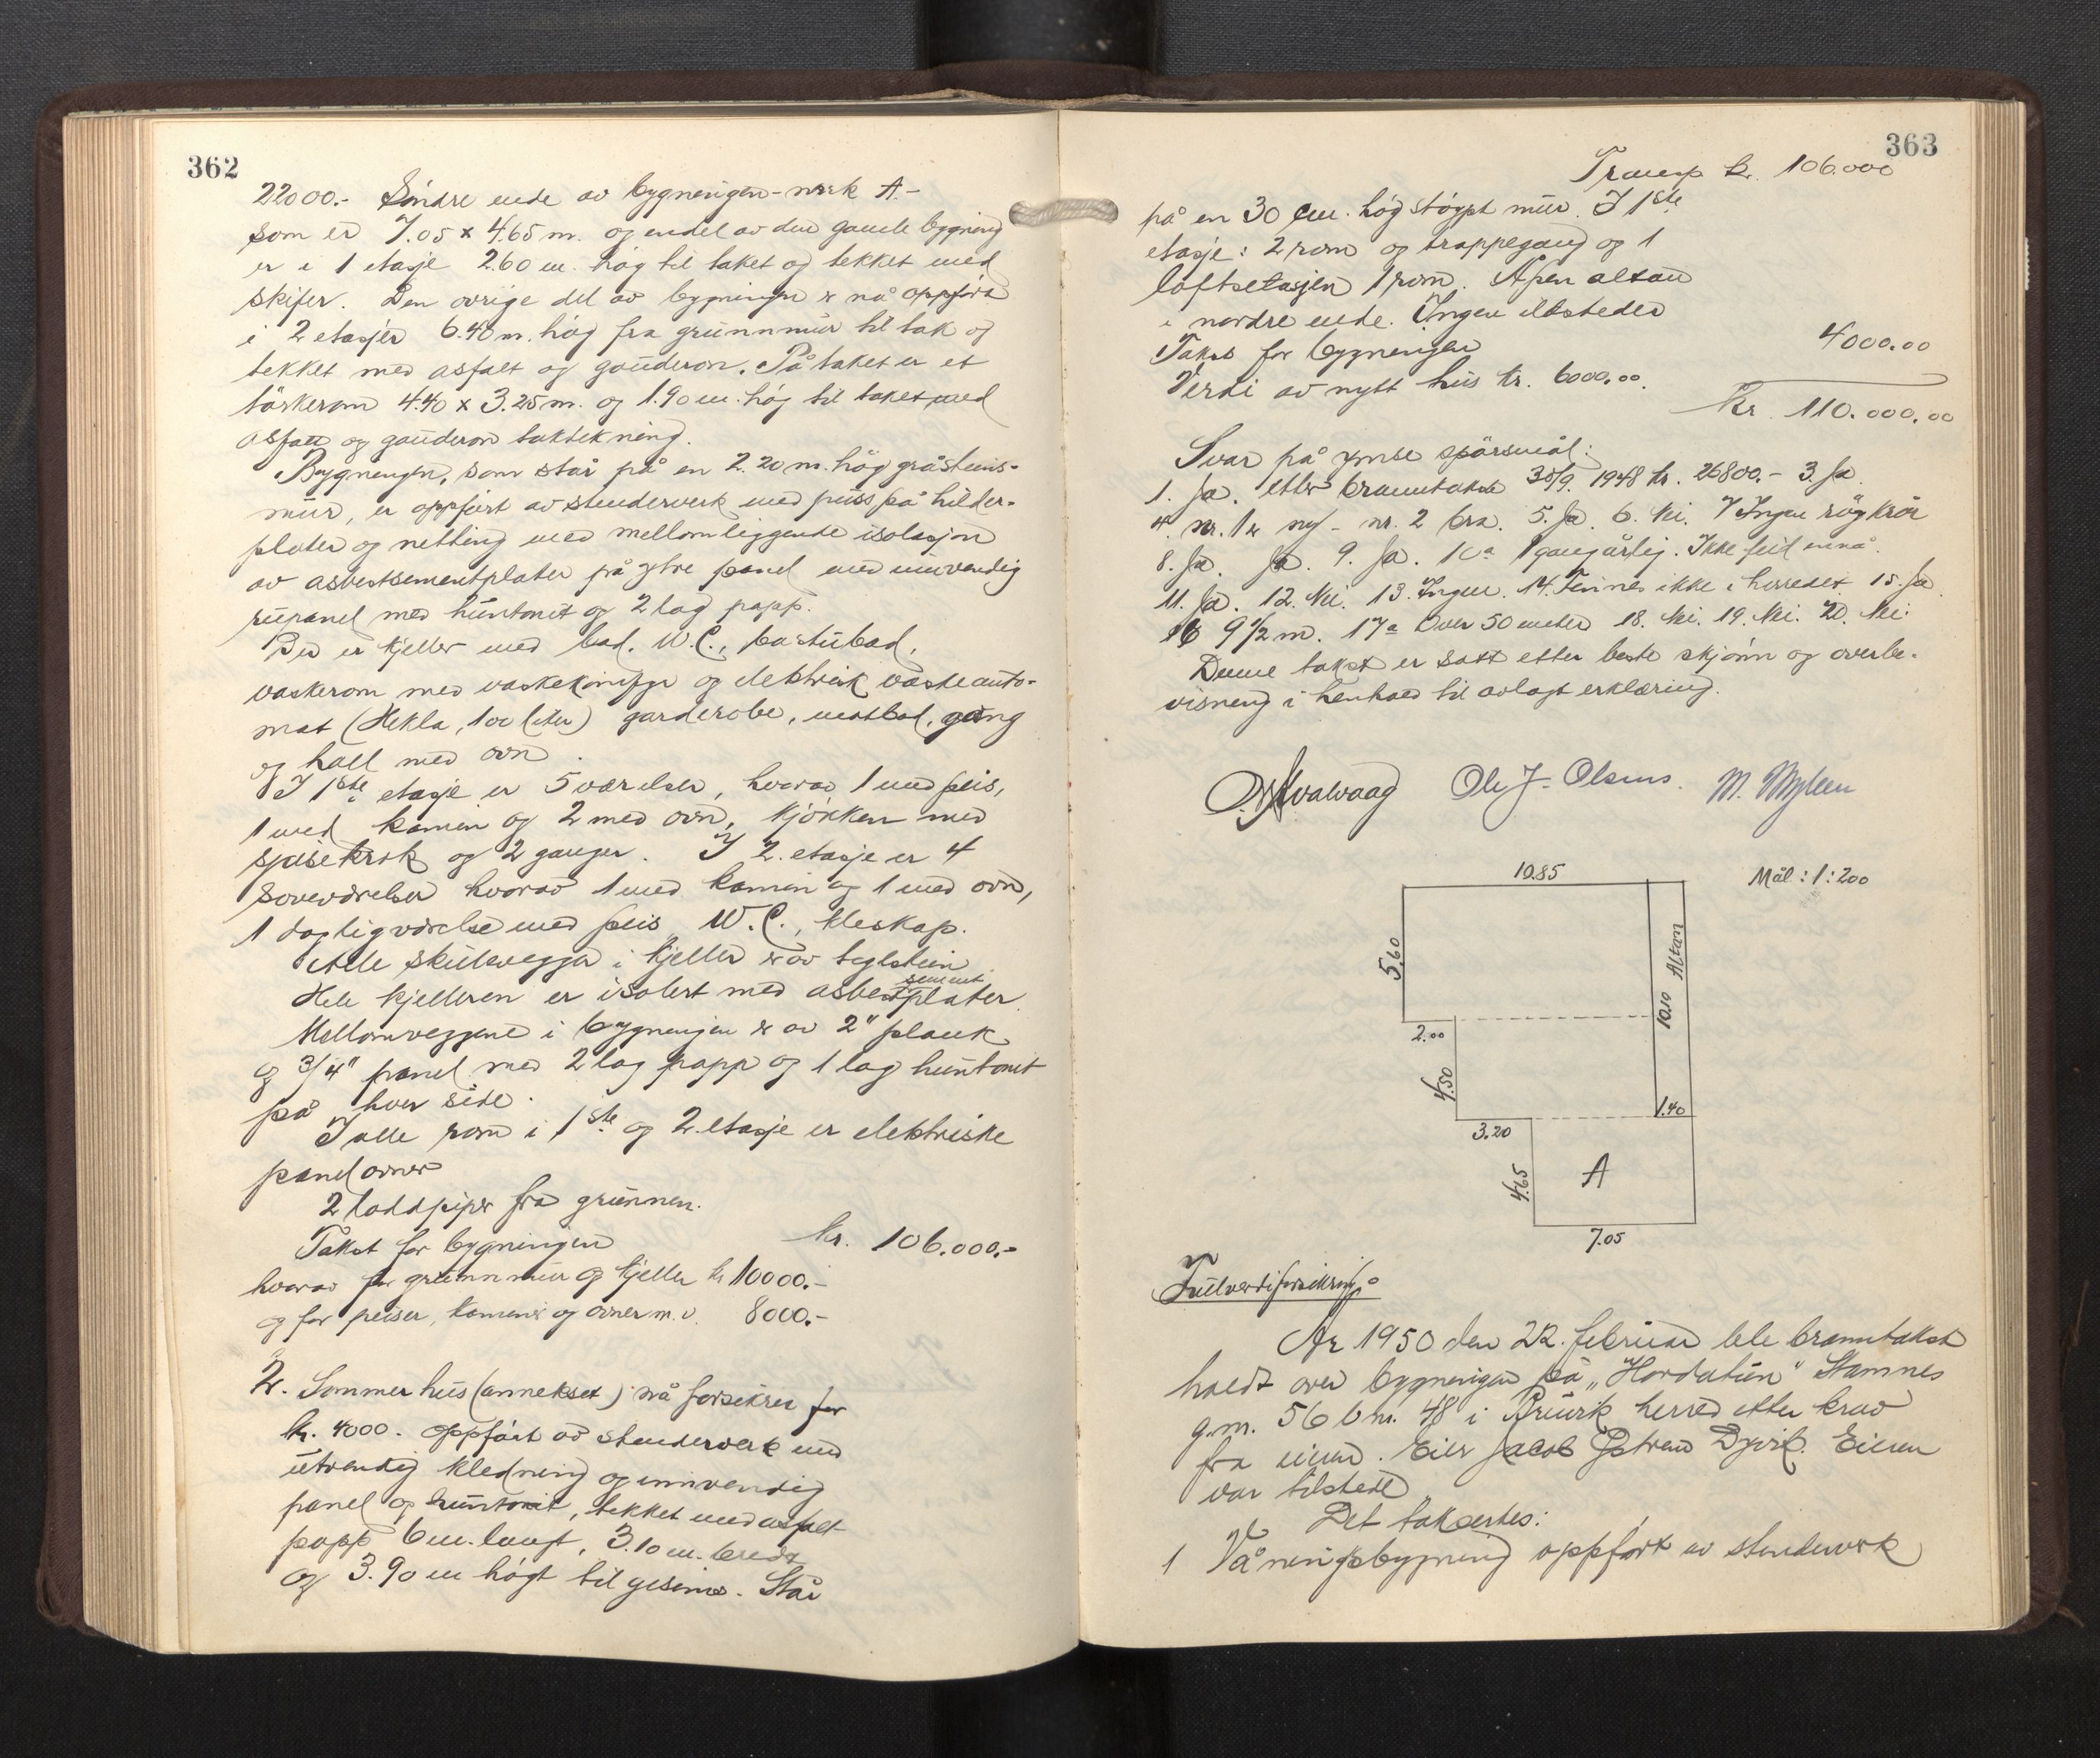 362
22000.- Söndre ende av bygningen - merk A -
som er 7.05 x 4.65 m. og endel av den gamle bygning
er i 1 etasje 2.60 m. høg til taket og tekket med
skifer. Den øvrige del av bygningen er nå oppført
i 2 etasjer 6.40 m. høg fra grunnmur til tak og
tekket med asfalt og gouderon. På taket er et
törkerom 4.40 x 3.25 m. og 1.90 m. høg til taket med
asfalt og gouderon taktekning.
Bygningen, som står på en 2.20 m. høg gråsteins-
mur, er oppført av stenderverk med puss på hilder-
plater og netting med mellomliggende isolasjon
av asbestsementplater på ytre panel med innvendig
rupanel med huntonit og 2 lag papp.
Der er kjeller med bad, W.C., bastubad,
vaskerom med vaskekum og elektrisk vaskeauto-
mat (Hekla, 100 liter) garderobe, matbod, gang
og hall med ovn.
I 1ste etasje er 5 værelser, hvorav 1 med peis,
1 med kamin og 2 med ovn, kjökken med
spisekrok og 2 ganger. I 2. etasje er 4
soveværelser hvorav 1 med kamin og 1 med ovn,
1 dagligværelse med peis, W.C., kleskap.
Alle skillevegger i kjeller er av teglstein
Hele kjelleren er isolert med asbestsementplater.
Mellomveggene i bygningen er av 2" plank
og 3/4" panel med 2 lag papp og 1 lag huntonit
på hver side.
I alle rom i 1ste og 2. etasje er elektriske
panelovner
2 loddpiper fra grunnen.
Takst for bygningen kr. 106.000.-
hvorav for grunnmur og kjeller kr 10000.-
og for peiser, kaminer og ovner m.v. 8000.-
2. Sommerhus (annekset) nå forsikret for
kr. 4000. oppført av stenderverk med
utvendig kledning og innvendig
panel og huntonit, tekket med asfalt
papp 6 m. langt, 3.10 m. bredt
og 3.90 m høgt til gesims. Står
363
Transp kr. 106.000
på en 30 cm. høg støpt mur. I 1ste
etasje: 2 rom og trappegang og i
loftsetasjen 1 rom. Åpen altan
i nordre ende. Ingen ildsteder
Takst for bygningen 4000.00
Verdi av nytt hus kr. 6000.00.
Kr. 110.000.00
Svar på ymse spörsmål:
1. Ja. etter branntakst 30/9. 1948 kr. 26800.- 3. Ja
4. nr. 1 er ny - nr. 2 bra. 5. Ja. 6. Nei. 7 Ingen røgkrör
8. Ja. Ja. 9. Ja. 10a 1 gang årlig. Ikke feid ennå.
11. Ja. 12. Nei. 13. Ingen. 14. Finnes ikke i herredet. 15. Ja.
16 9 1/2 m. 17a Over 50 meter 18. Nei. 19. Nei. 20. Nei.
Denne takst er satt etter beste skjönn og overbe-
visning i henhold til avlagt erklæring.
Ole J. Olsnes. M. Myleen
10.85
Mål: 1:200
5.60
Altan
10.10
2.00
4.50
1.40
3.20
4.65
A
7.05
Fullverdiforsikring
År 1950 den 22. februar ble branntakst
holdt over bygningen på „Hordatun" Stamnes
g.nr. 56 b.nr. 48 i Bruvik herred etter krav
fra eieren. Eier Jacob Dyvik. Eieren
var tilstede
Det takstertes:
1 Våningsbygning oppført av stenderverk